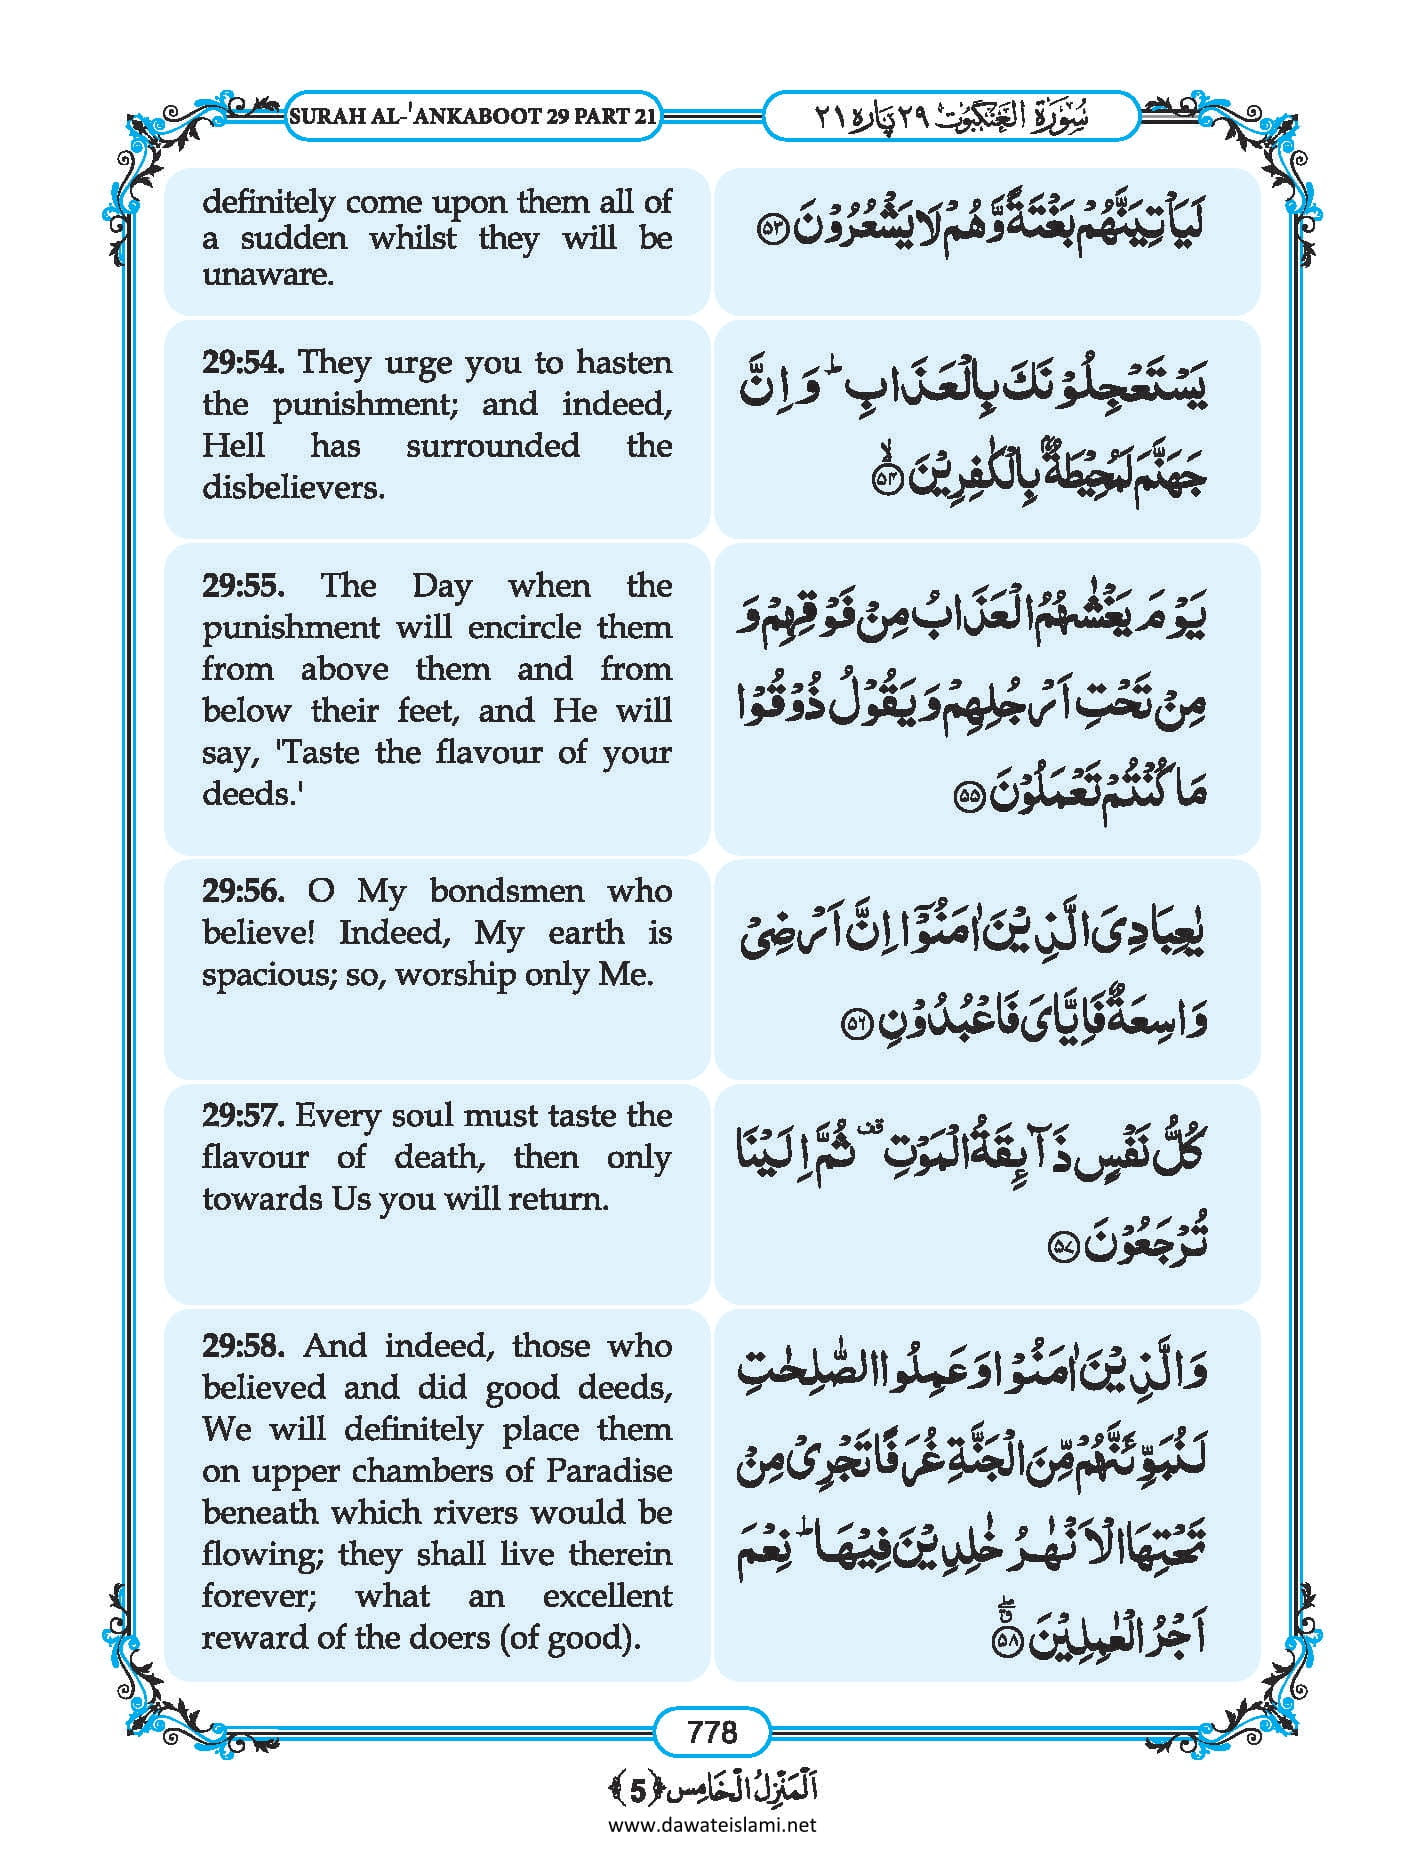 SURAH AL-'ANKABOOT 29 PART 21
سُوْرَۃُ الْعَنْکَبُوْت ۲۹ پارہ ۲۱
definitely come upon them all of
a sudden whilst they will be
unaware.
لَیَاْتِیَنَّهُمْ بَغْتَةً وَّ هُمْ لَا یَشْعُرُوْنَ ﴿۵۳﴾
29:54. They urge you to hasten
the punishment; and indeed,
Hell has surrounded the
disbelievers.
یَسْتَعْجِلُوْنَكَ بِالْعَذَابِ ؕ وَ اِنَّ
جَهَنَّمَ لَمُحِیْطَةٌۢ بِالْكٰفِرِیْنَ ﴿ۙ۵۴﴾
29:55. The Day when the
punishment will encircle them
from above them and from
below their feet, and He will
say, 'Taste the flavour of your
deeds.'
یَوْمَ یَغْشٰىهُمُ الْعَذَابُ مِنْ فَوْقِهِمْ وَ
مِنْ تَحْتِ اَرْجُلِهِمْ وَ یَقُوْلُ ذُوْقُوْا
مَا كُنْتُمْ تَعْمَلُوْنَ ﴿۵۵﴾
29:56. O My bondsmen who
believe! Indeed, My earth is
spacious; so, worship only Me.
یٰعِبَادِیَ الَّذِیْنَ اٰمَنُوْۤا اِنَّ اَرْضِیْ
وَاسِعَةٌ فَاِیَّایَ فَاعْبُدُوْنِ ﴿۵۶﴾
29:57. Every soul must taste the
flavour of death, then only
towards Us you will return.
كُلُّ نَفْسٍ ذَآىِٕقَةُ الْمَوْتِ ۫ ثُمَّ اِلَیْنَا
تُرْجَعُوْنَ ﴿۵۷﴾
29:58. And indeed, those who
believed and did good deeds,
We will definitely place them
on upper chambers of Paradise
beneath which rivers would be
flowing; they shall live therein
forever; what an excellent
reward of the doers (of good).
وَ الَّذِیْنَ اٰمَنُوْا وَ عَمِلُوا الصّٰلِحٰتِ
لَنُبَوِّئَنَّهُمْ مِّنَ الْجَنَّةِ غُرَفًا تَجْرِیْ مِنْ
تَحْتِهَا الْاَنْهٰرُ خٰلِدِیْنَ فِیْهَا ؕ نِعْمَ
اَجْرُ الْعٰمِلِیْنَ ﴿۵۸﴾
778
اَلْمَنْزِلُ الْخَامِس ﴿5﴾
www.dawateislami.net